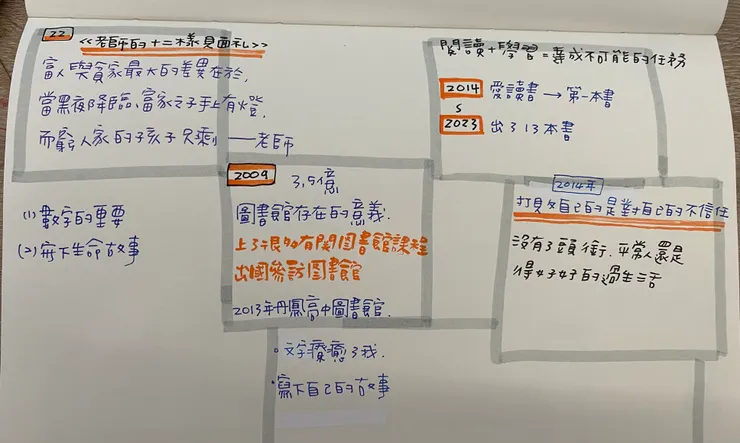 22 <<老師的十二樣見面礼>>
富人與貧家最大的差異在於,
當黑夜降臨,富家之子手上有燈,
而窮人家的孩子只剩——老師
(1) 數字的重要
(2) 寫下生命故事
2009 3,5億
圖書館存在的意義.
上了很多有関圖書館課程
出國參訪图書館
2013年丹鳳高中圖書館.
。文字療癒了我.
·寫下自己的故事
閱讀+學習=達成不可能的任務
2014 愛讀書→第一本書
S
2023 出了13本書
2014年
打敗自己的是對自己的不信任
沒有了頭銜.平常人還是
得好好的過生活